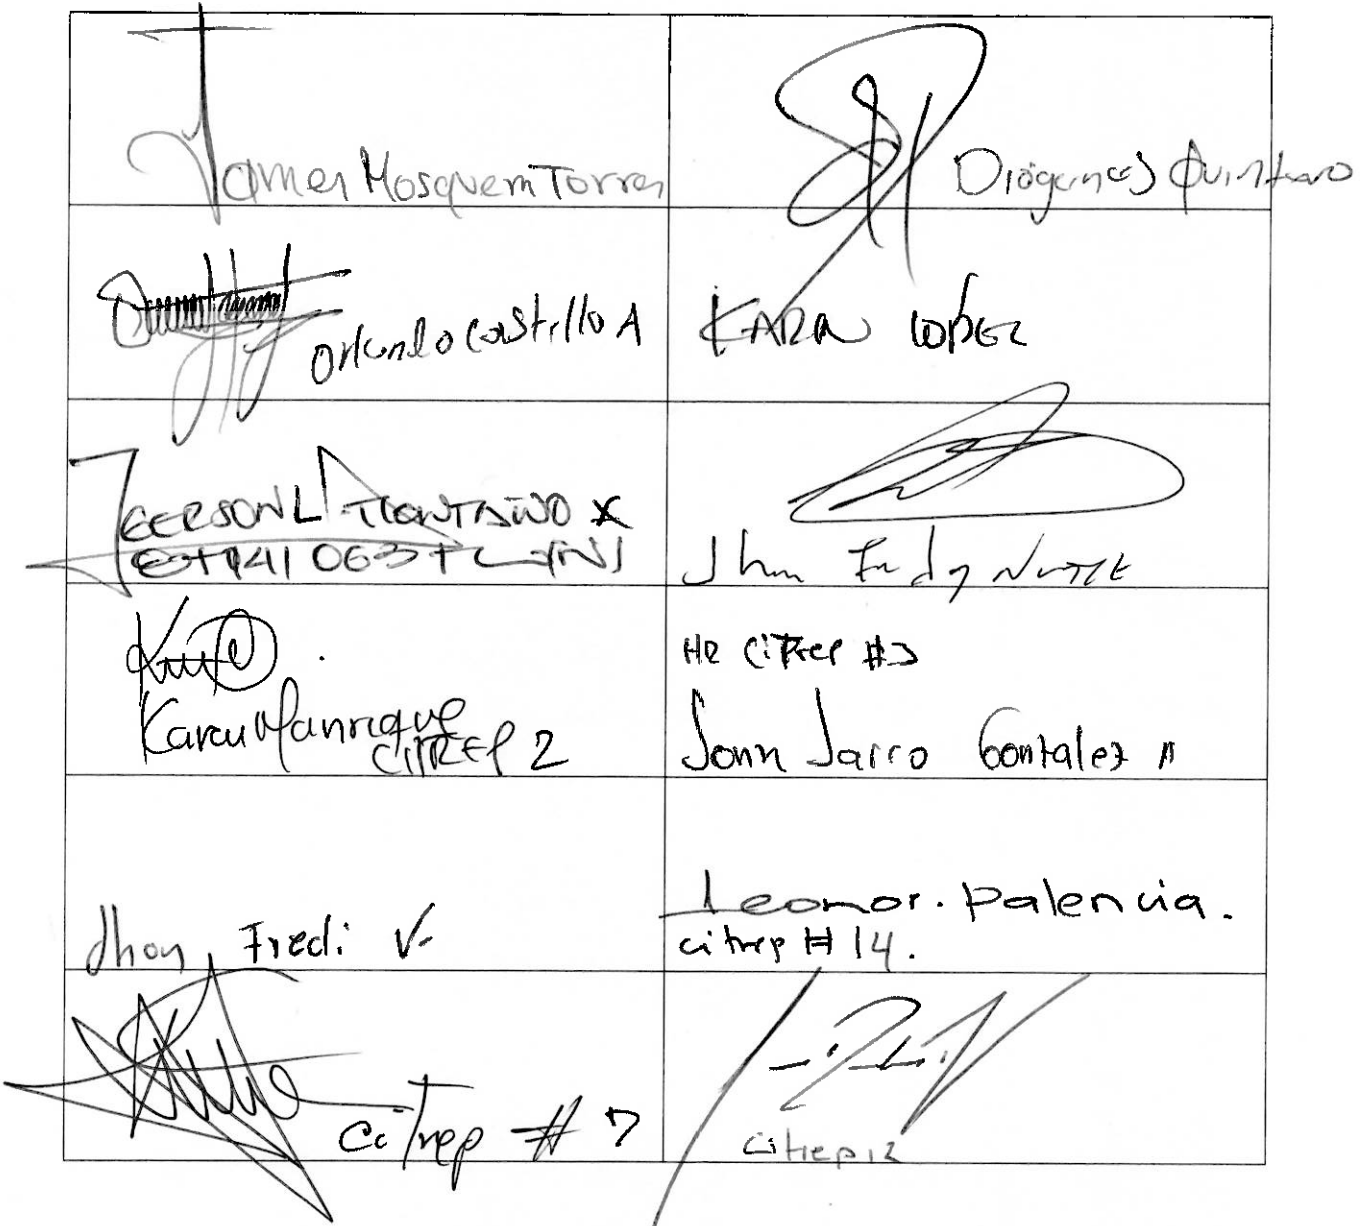 James Mosquera Torres
Diógenes Quintero
Orlando Castillo A
KAREN LOPEZ
Jhon Fredy
Karen Manrique
CITREP 2
HR CITREP #3
John Jairo Gonzalez A
Jhon Fredi V.
Leonor. Palencia.
citrep # 14.
CiTrep # 7
citrep 12